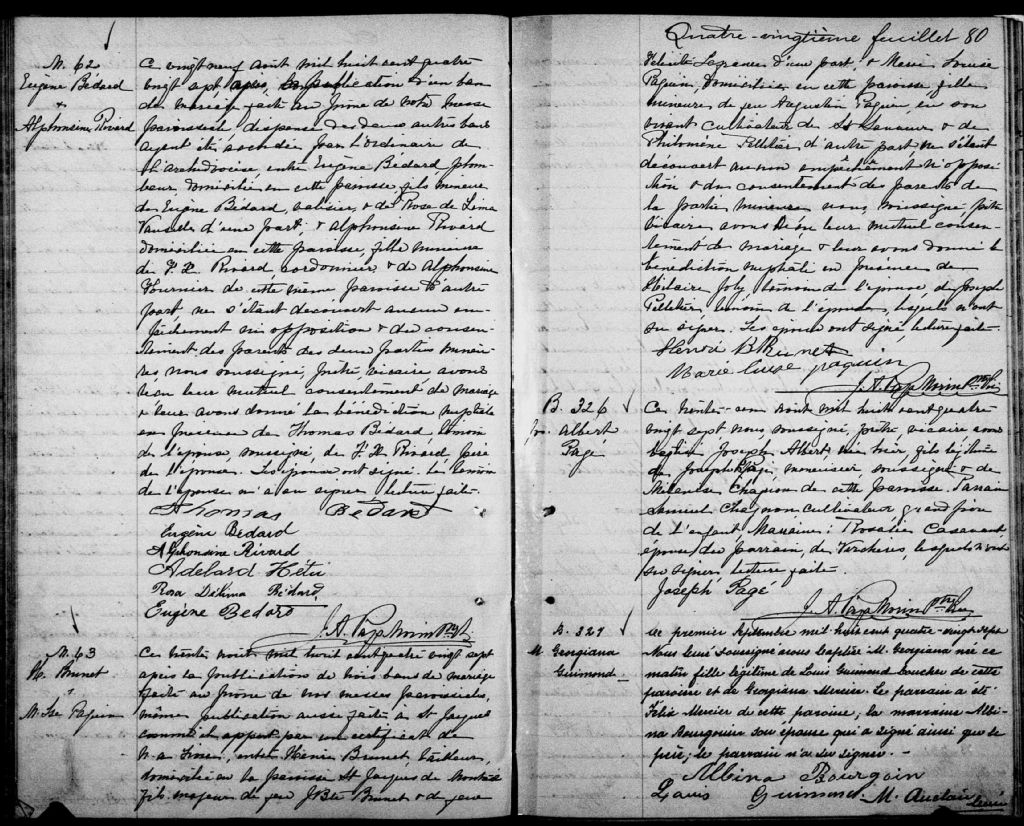 M. 62
Eugène Bédard
+
Alphonsine Rivard
Ce vingt neuf août mil huit cent quatre
vingt sept, après la publication d'un ban
de mariage faite au prône de notre messe
paroissiale, dispense des deux autres bans
ayant été accordée par l'Ordinaire de
l'archidiocèse, entre Eugène Bédard plom-
beur, domicilié en cette paroisse, fils mineur
de Eugène Bédard, voiturier, & de Rose de Lima
d'une part, & Alphonsine Rivard
domiciliée en cette paroisse, fille mineure
de F. X. Rivard, cordonnier & de Alphonsine
Fournier de cette même paroisse d'autre
part, ne s'étant découvert aucun em-
pêchement ni opposition & du consen-
tement des parents des deux parties mineu-
res, nous soussigné, prêtre, vicaire avons
reçu leur mutuel consentement de mariage
& leur avons donné la bénédiction nuptiale
en présence de Thomas Bédard témoin
de l'époux, soussigné, de F. X. Rivard père
de l'épouse. Les époux ont signé. Le témoin
de l'épouse n'a su signer. Lecture faite.
Thomas Bédard
Eugène Bédard
Alphonsine Rivard
Adelard Hétu
Rosa Délima Bédard
Eugène Bedard
J. A. Pap. Morin Ptre Vic
M. 63
H. Brunet
+
M. Lse Paquin
Ce trente août mil huit cent quatre vingt sept
après la publication de trois bans de mariage
faite au prône de nos messes paroissiales,
même publication aussi faite à St Jacques
comme il appert par un certificat de
entre Henri Brunet, tailleur,
domicilié en la paroisse St Jacques de Montréal
fils majeur de feu J Bte Brunet & de feue
Quatre-vingtième feuillet 80
d'une part, & Marie Louise
Paquin, domiciliée en cette paroisse fille
mineure de feu Augustin Paquin, en son
vivant cultivateur de St Sauveur & de
Philomène Pelletier d'autre part ne s'étant
découvert aucun empêchement ni opposi-
tion & du consentement des parents de
la partie mineure nous, soussigné, prêtre
vicaire avons reçu leur mutuel consen-
tement de mariage & leur avons donné la
bénédiction nuptiale en présence de
Hilaire Joly témoin de l'époux, de Joseph
Pelletier, témoin de l'épouse, lesquels n'ont
su signer. Les époux ont signé, lecture faite.
Henri Brunet
Marie Luise paquin
J. A. Pap. Morin Ptre Vic
B. 326
Jos. Albert
Pagé
Ce trente-un août mil huit cent quatre
vingt sept nous soussigné, prêtre vicaire avons
baptisé Joseph Albert né hier, fils légitime
de Joseph Pagé, menuisier soussigné & de
Chagnon de cette paroisse. Parrain
Samuel Chagnon cultivateur grand père
de l'enfant, Marraine: Rosalie Casavant,
épouse du parrain, de Verchères, lesquels n'ont
su signer, lecture faite.
Joseph Pagé
J. A. Pap. Morin Ptre Vic
B. 327
M. Georgiana
Guimond
Le premier Septembre mil huit cent quatre-vingt sept
Nous curé soussigné avons baptisé M. Georgiana née ce
matin fille légitime de Louis Guimond boucher de cette
paroisse et de Georgiana Mercier. Le parrain a été
Félix Mercier de cette paroisse, la marraine Albi-
na Bourgouin son épouse qui a signé ainsi que le
père; le parrain n'a su signer.
Albina Bourgoin
Louis Guimond M. Auclair
curé